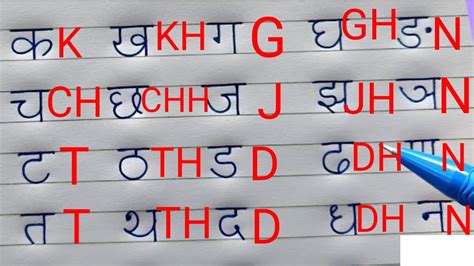 क K ख KH ग G घ GH ङ N
च CH छ CHH ज J झ JH ञ N
ट T ठ TH ड D ढ DH ण N
त T थ TH द D ध DH न N